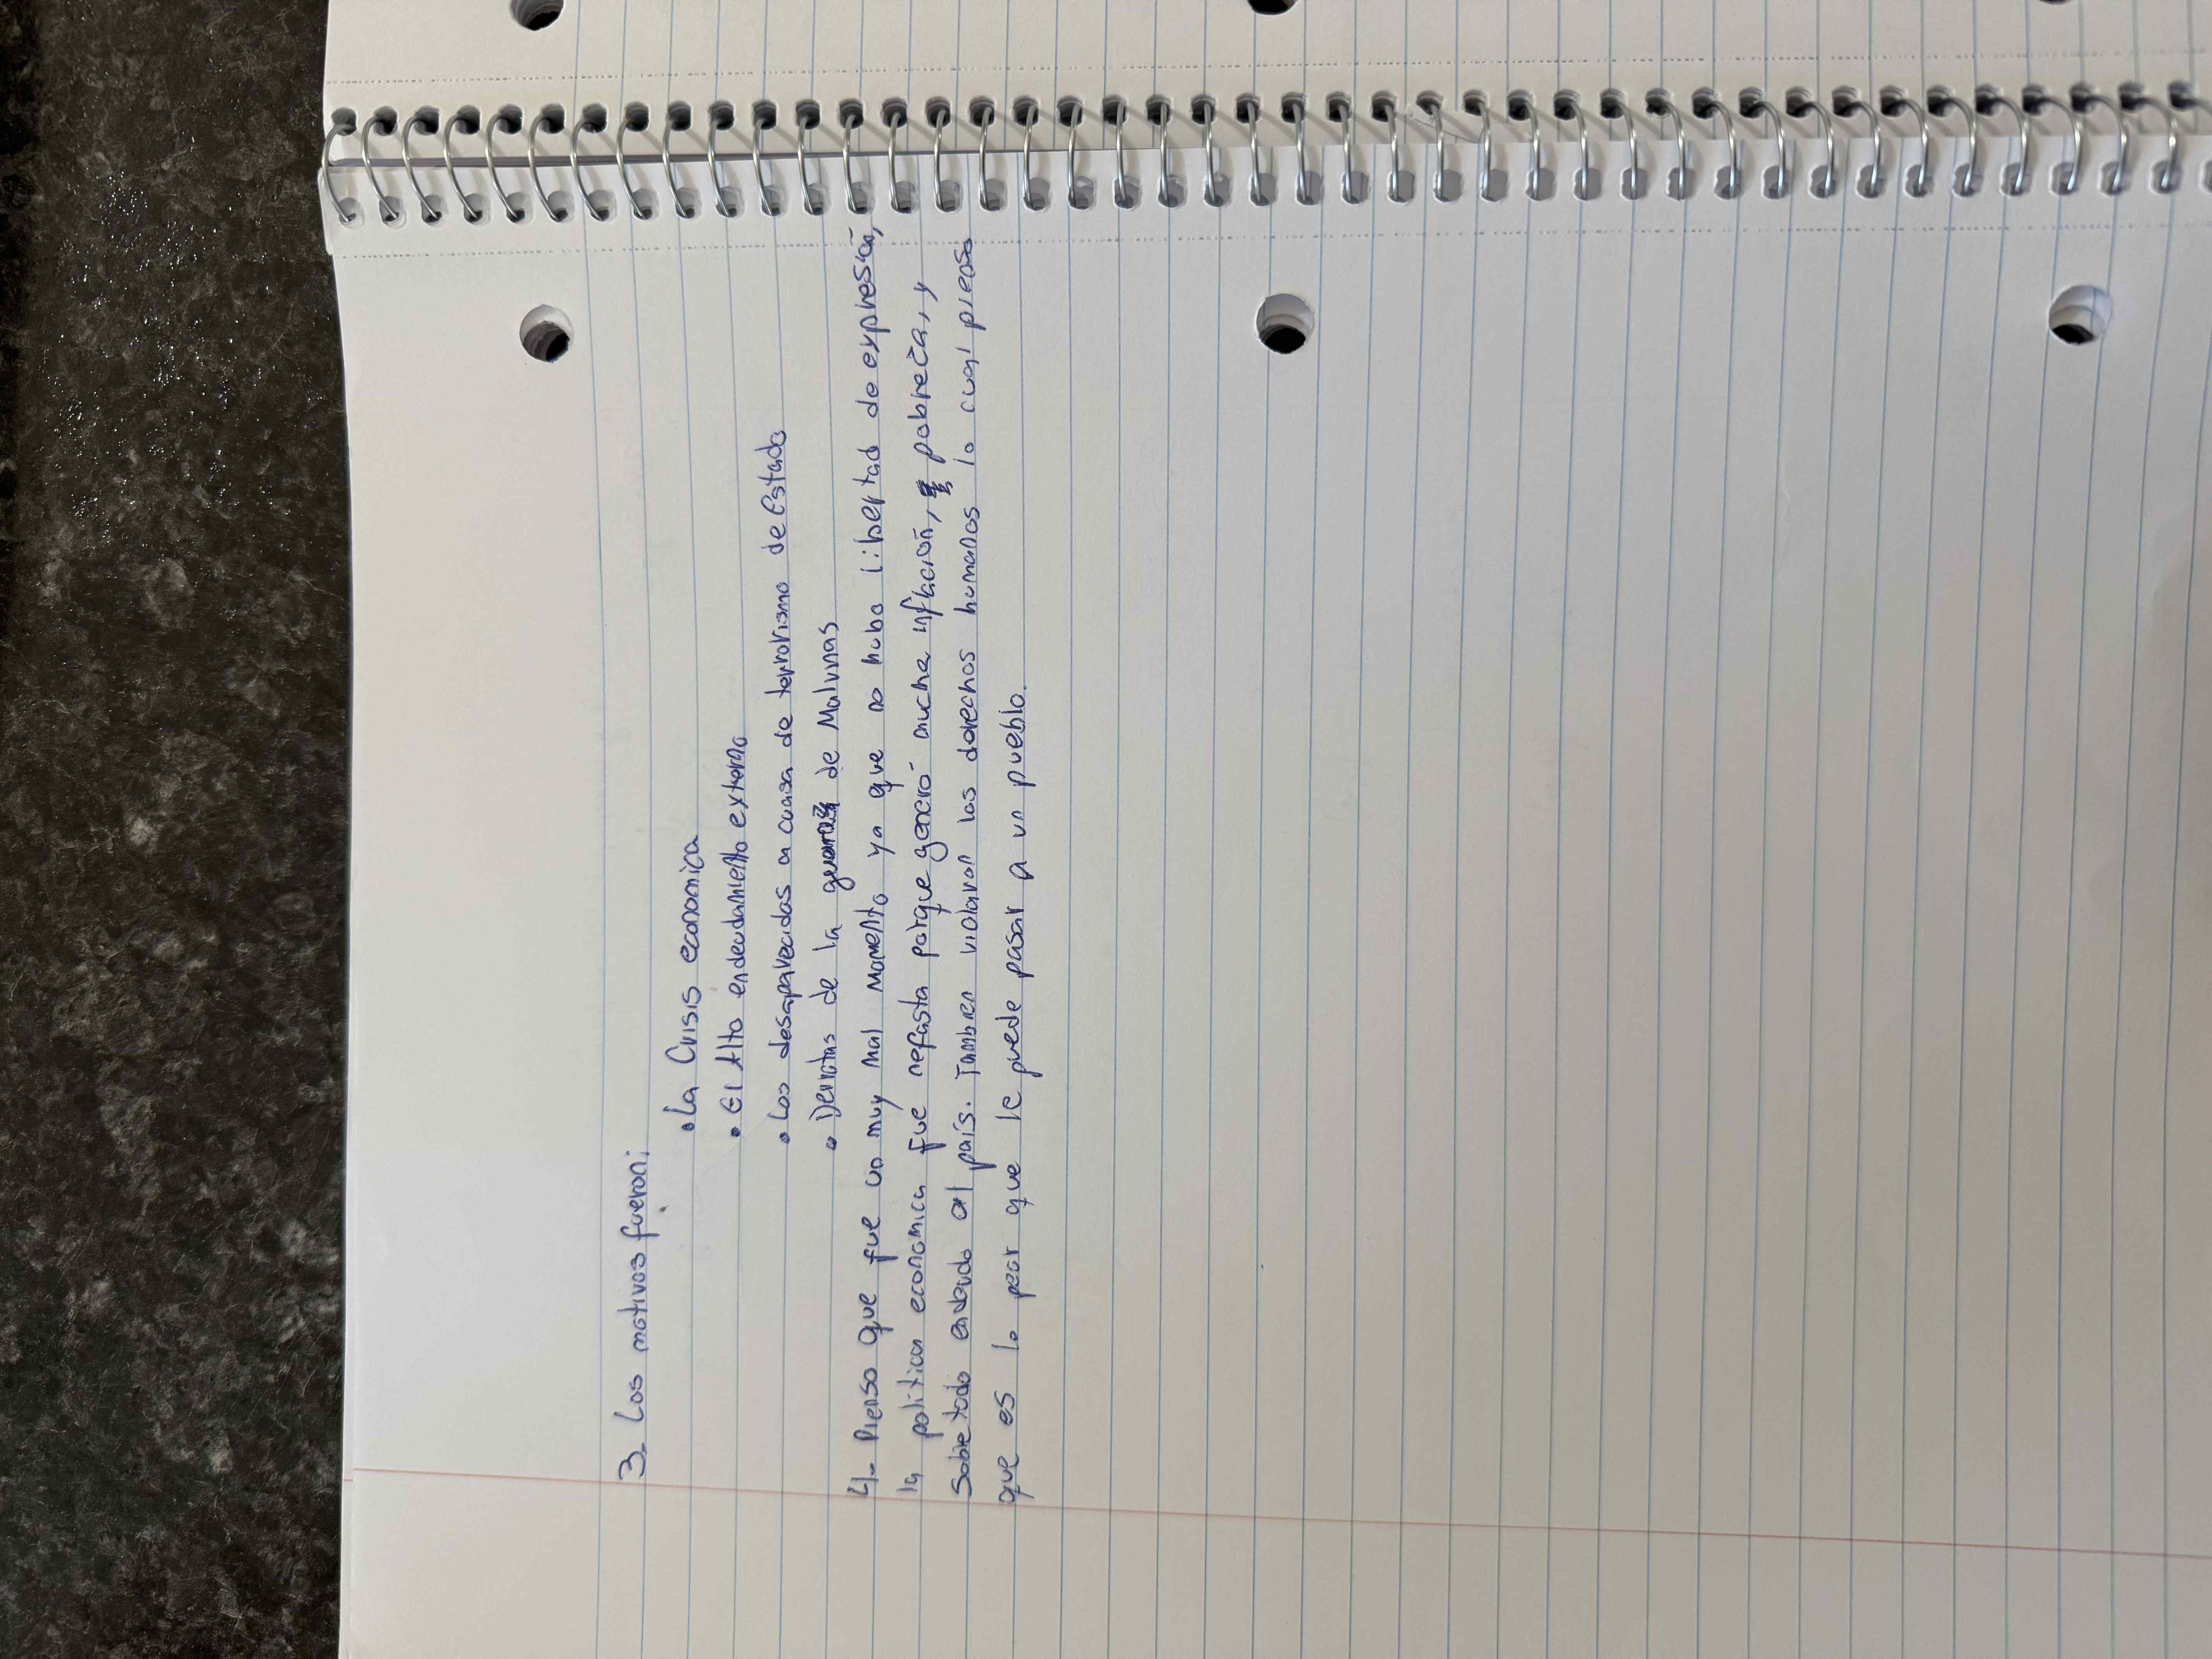 3_ Los motivos fueron:
• La Crisis economica
• El Alto endeudamiento externo
• Los desaparecidos a causa de terrorismo de Estado
• Derrotas de la guerra de Malvinas
4_ Pienso que fue un muy mal momento ya que no hubo libertad de expresión,
la politica economica fue nefasta porque generó mucha inflación, pobreza, y
sobre todo endeudo al país. Tambien violaron los derechos humanos lo cual pienso
que es lo peor que le puede pasar a un pueblo.